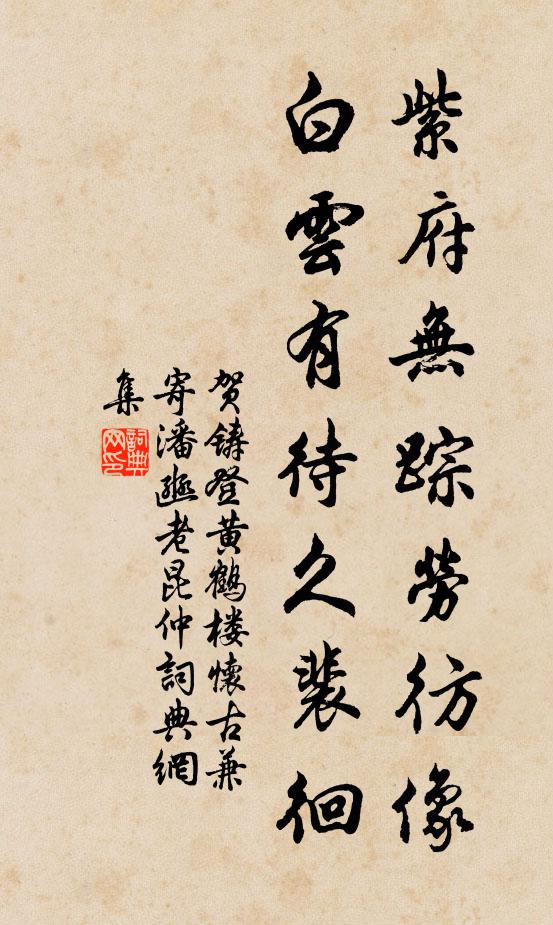 紫府無踪勞彷像
白雲有待久裴徊
贺鑄登黄鶴楼懷古兼
寄潘邠老昆仲詞典網
集
詞典
网印